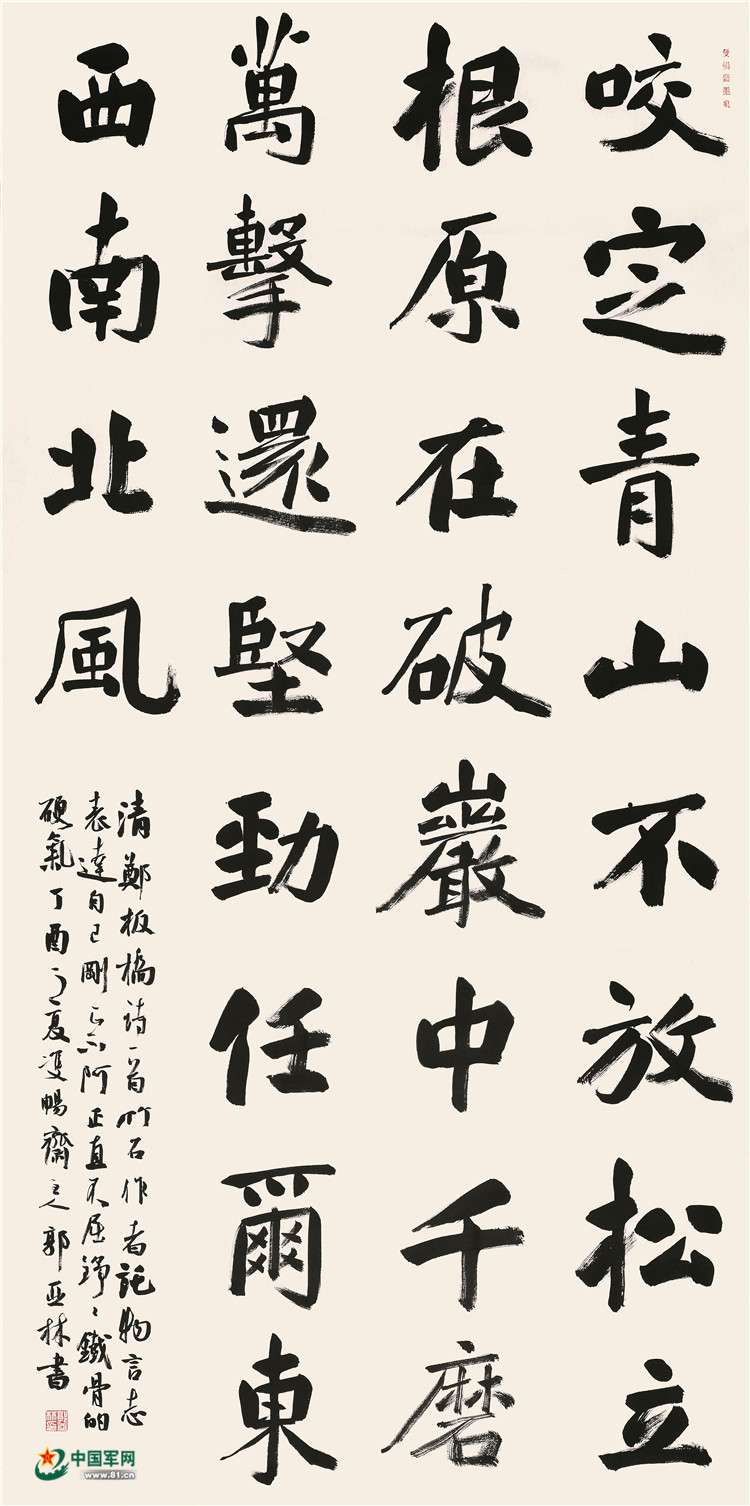 雙暢齋墨痕
咬定青山不放松立
根原在破巖中千磨
萬擊還堅勁任爾東
西南北風
清鄭板橋詩一首竹石作者託物言志
表達自己剛正不阿正直不屈錚〻鐵骨的
硬氣丁酉之夏雙暢齋主人郭亞林書
中国军网
www.81.cn